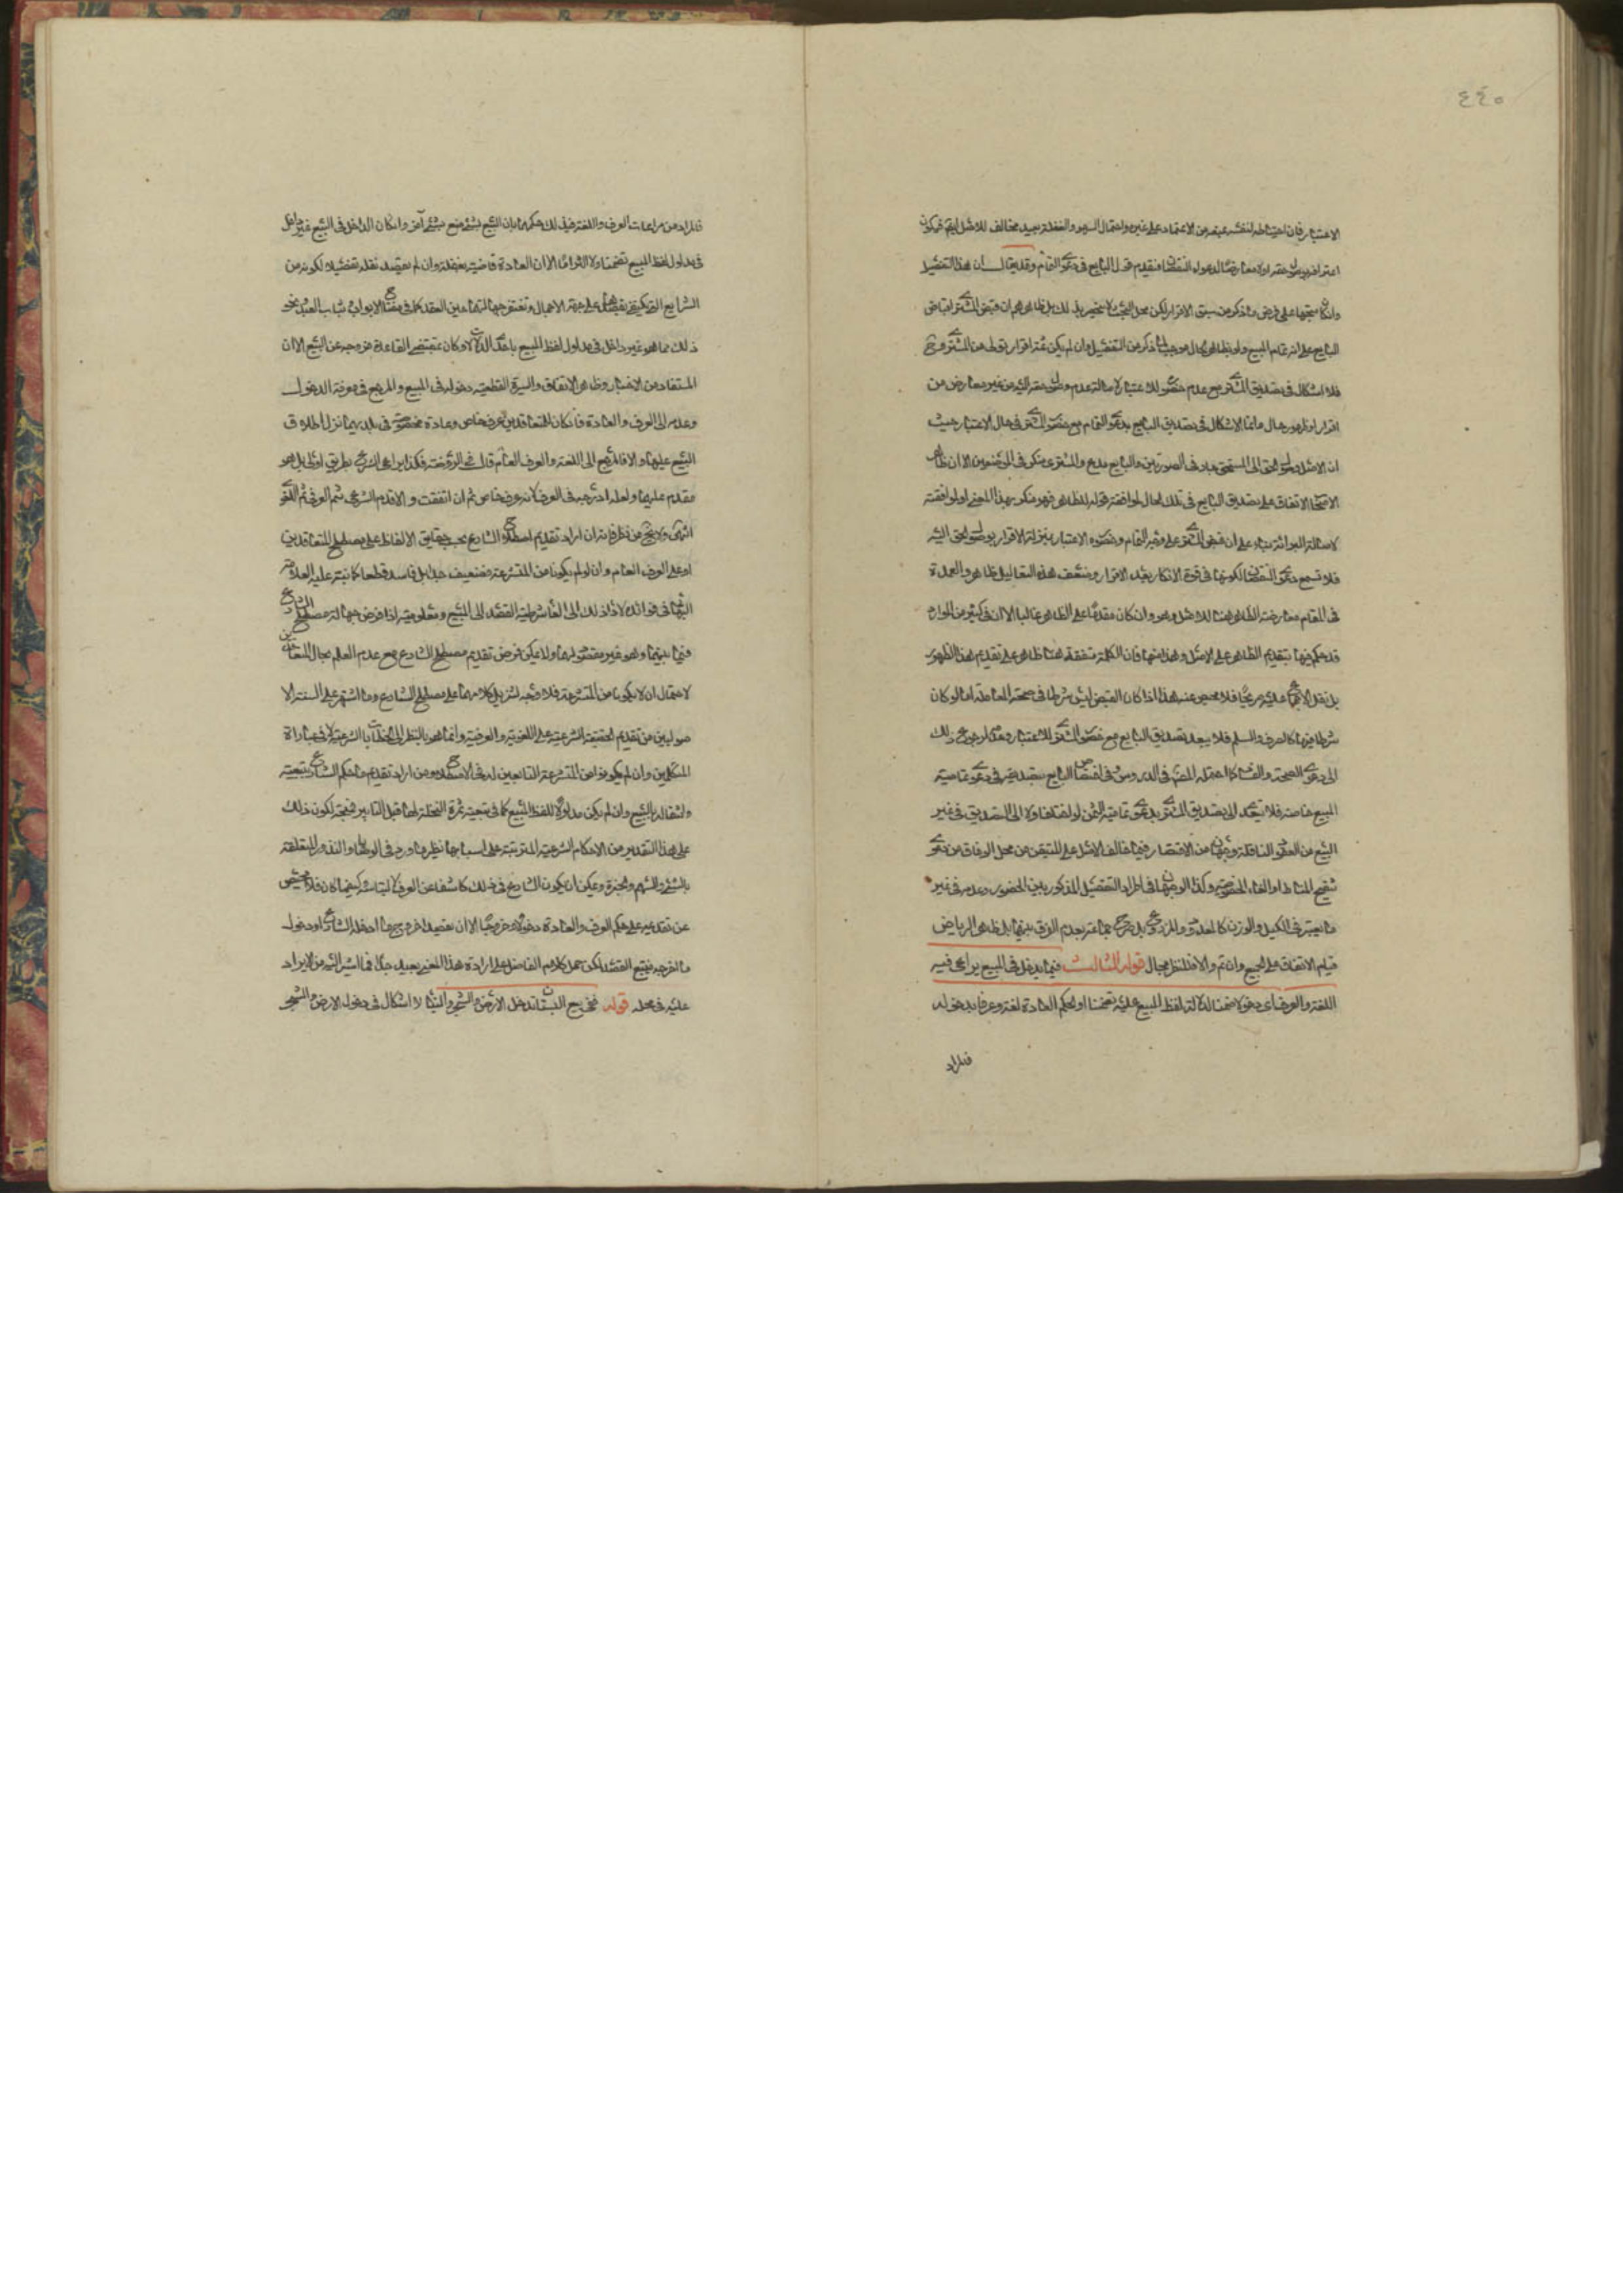 ٤٤٠
الاعتبار فان احتياطه لنفسه يمنعه من الاعتماد على غيره واحتمال السهو والغفلة بعيد مخالف للاصل ايضا فيكون
اعترافه بوصول حقه اولا معارضا لدعواه النقصان فيقدم قول البايع في دعوى التمام وقد يقال ان هذا التفصيل
وانكان متجها على فرض ما ذكر من سبق الاقرار لكن محل البحث لا ينحصر بذلك بل ظاهرهم ان قبض المشتري اقباض
البايع على انه تمام المبيع ولو بظاهر الحال موجب لما ذكر من التفصيل وان لم يكن ثمة اقرار قولي من المشتري وح
فلا اشكال في تصديق المشتري مع عدم حضوره للاعتبار لاصالة عدم وصول حقه اليه من غير معارض من
اقرار او ظهور حال وانما الاشكال في تصديق البايع بدعوى التمام مع حضور المشتري في حال الاعتبار حيث
ان الاصل عدم وصول الحق الى المستحق جار في الصورتين والبايع مدع والمشتري منكر في الموضعين الا ان ظاهر
الاصحاب الاتفاق على تصديق البايع في تلك الحال لموافقة قوله للظاهر فهو منكر بهذا المعنى او لموافقته
لاصالة البرائة بناء على ان قبض المشتري على وجه التمام وحضوره الاعتبار بمنزلة الاقرار بوصول الحق اليه
فلا تسمع دعوى النقصان لكونها في قوة الانكار بعد الاقرار وضعف هذه التعاليل ظاهر والعمدة
في المقام معارضة الظاهر هنا للاصل وهو وان كان مقدما على الظاهر غالبا الا ان في كثير من الموارد
قد حكم فيها بتقديم الظاهر على الاصل وهذا منها فان الكلمة متفقة هنا ظاهرا على تقديم هذا الظهور
بل نقل الاجماع عليه صريحا فلا محيص عنه هذا اذا كان القبض ليس شرطا في صحة المعاملة اما لو كان
شرطا فيها كالصرف والسلم فلا يبعد تصديق البايع مع حضور المشتري للاعتبار وعدمه لرجوع ذلك
الى دعوى الصحة والفساد كما احتمله المص في الدروس وفي اختصاص البايع بتصديقه في دعوى تمامية
المبيع خاصة فلا يتعدى الى تصديق المشتري بدعوى تمامية الثمن لو اختلفا ولا الى التصديق في غير
البيع من العقود الناقلة وجهان من الاقتصار فيما خالف الاصل على المتيقن من محل الوفاق من دعوى
تنقيح المناط والغاء الخصوصية وكذا الوجهان في اطراد التفصيل المذكور بين الحضور وعدمه في غير
ما يعتبر في الكيل والوزن كالمعدود والمذروع بل صرح جماعة بعدم الفرق بينهما بل ظاهر الرياض
قيام الاتفاق على الجميع وان تم والا فللنظر مجال قوله الثالث فيما يدخل في المبيع يراعى فيه
اللغة والعرف اي دخولا ضمنا لدلالة لفظ المبيع عليه تضمنا او لحكم العادة لغة وعرفا بدخوله
فالمراد
فالمراد من مراعات العرف واللغة في ذلك حكمهما بان البيع لشئ مع شئ آخر وان كان الداخل في البيع غير داخل
في مدلول لفظ المبيع تضمنا ولا التزاما الا ان العادة قاضية بنقله وان لم يقصد نقله تفصيلا لكونه من
التوابع التي يكفي قصدها على جهة الاجمال وتغتفر جهالتها حين العقد كما في مفتاح الابواب وثياب العبد ونحو
ذلك مما هو غير داخل في مدلول لفظ المبيع باحدى الدلالات وكان مقتضى القاعدة خروجه عن البيع الا ان
المستفاد من الاخبار وظاهر الاتفاق والسيرة القطعية دخوله في المبيع والمرجع في معرفة الدخول
وعدمه الى العرف والعادة فان كان للمتعاقدين عرف خاص وعادة مخصوصة في بلديهما نزل اطلاق
البيع عليهما والا فالمرجع الى اللغة والعرف العام قال في الروضة وكذا يراعى الشرع بطريق اولى بل هو
مقدم عليهما ولعله ادرجه في العرف لانه عرف خاص ثم ان اتفقت والا قدم الشرعي ثم العرفي ثم اللغوي
انتهى ولا يخ من نظر فانه ان اراد تقديم اصطلاح الشارع بحسب حقايق الالفاظ على مصطلح المتعاقدين
او على العرف العام وان لم يكونا من المتشرعة فضعيف جدا بل فاسد قطعا كما نبه عليه العلامة
البهبهاني في فوائده لاداء ذلك الى الغاء شرطية القصد الى المبيع ومعلوميته اذا فرض جهالة مصطلح الشارع
فيما بينهما وهو غير مقصود لهما ولا يمكن فرض تقديم مصطلح الشارع مع عدم العلم بحال المتعاقدين
لاحتمال ان لا يكونا من المتشرعة فلا وجه لتنزيل كلامهما على مصطلح الشارع وما اشتهر على السنة الا
صوليين من تقديم الحقيقة الشرعية على اللغوية والعرفية وانما هو بالنظر الى الخطابات الشرعية لا في عبارة
المتكلمين وان لم يكونوا من المتشرعة التابعين له في الاصطلاح ومن اراد تقديم ما حكم الشارع بتبعيته
وانتقاله بالبيع وان لم يكن مدلولا للفظ المبيع كما في تبعية ثمرة النخلة لها قبل التابير فمتجه لكون ذلك
على هذا التقدير من الاحكام الشرعية المترتبة على اسبابها نظير ما ورد في الوصايا والنذور المتعلقة
بالشئ والسهم والجزء ويمكن ان يكون الشارع في ذلك كاشفا عن العرف لالتباسه وكيفما كان فلا محيص
عن تقديمه على حكم العرف والعادة دخولا وخروجا الا ان يقصد اخراج ما ادخله الشارع او دخول
ما اخرجه فيتبع القصد لكن حمل كلام الفاضل على ارادة هذا المعنى بعيد جدا كما اشير اليه من الايراد
عليه في محله قوله ففي بيع البستان يدخل الارض والشجر والبناء لا اشكال في دخول الارض والشجر